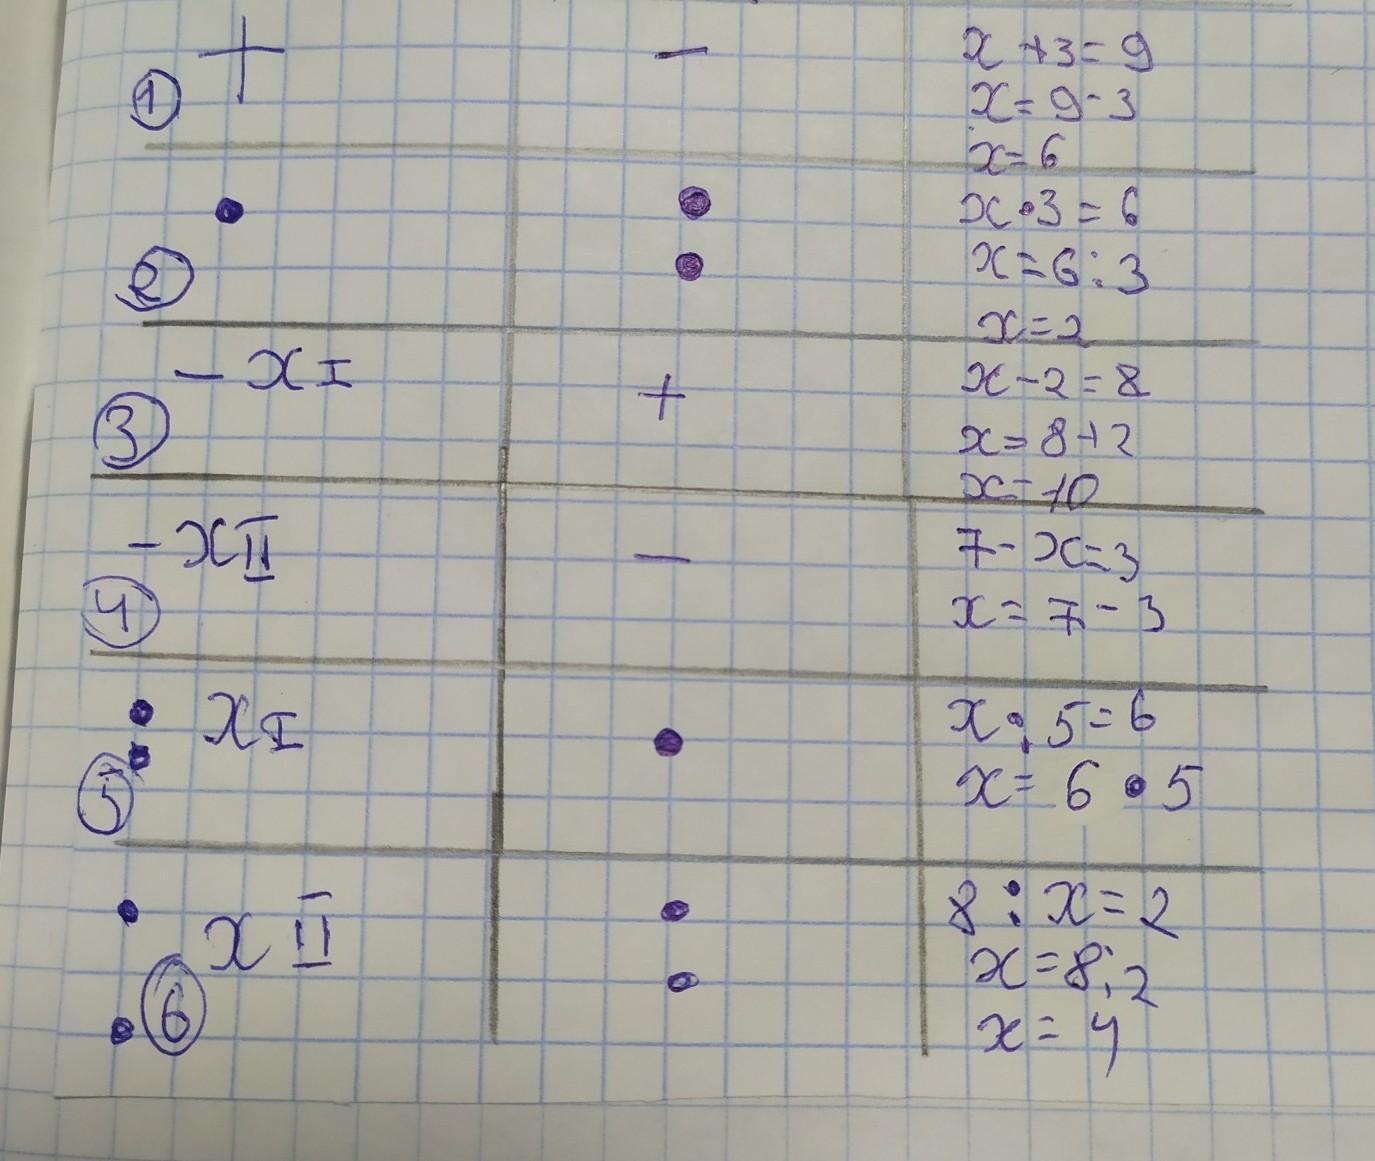 + − x + 3 = 9
① x = 9 - 3
x = 6
• : x • 3 = 6
② x = 6 : 3
x = 2
− x I + x − 2 = 8
③ x = 8 + 2
x = 10
− x II − 7 - x = 3
④ x = 7 − 3
: x I • x : 5 = 6
⑤ x = 6 • 5
: x II : 8 : x = 2
⑥ x = 8 : 2
x = 4